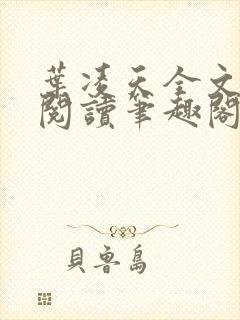 葉凌天全文
閱讀筆趣閣
貝魯島